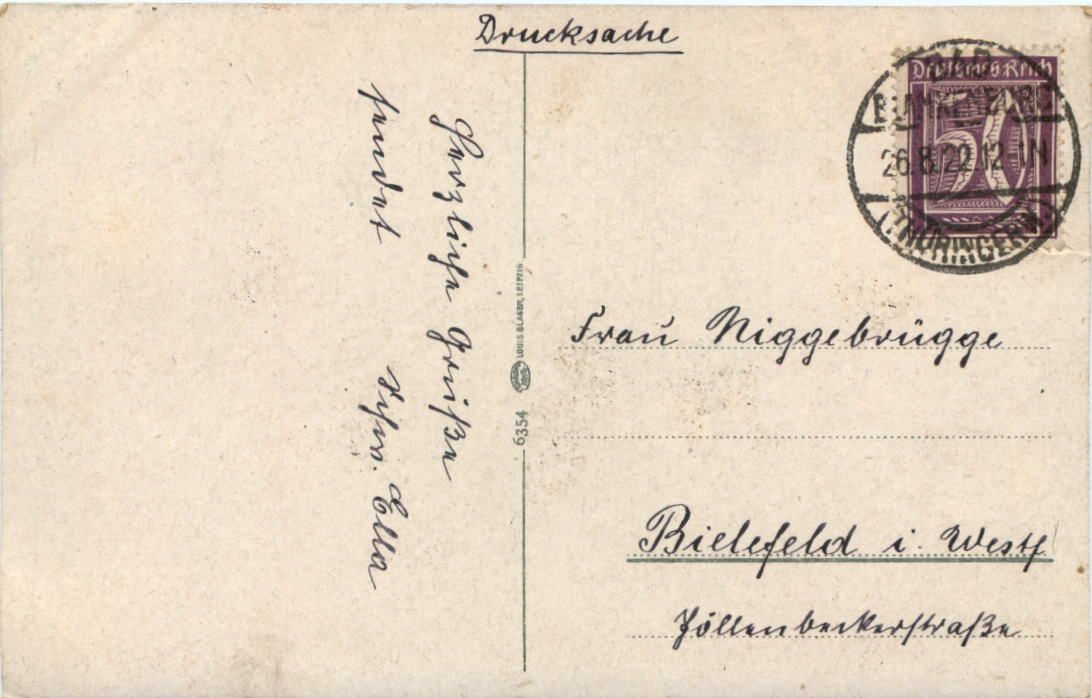 Drucksache
Deutsches Reich
50
BAD
BLANKENBURG
26.8.22.12-1N
(THÜRINGERW.)
Herzliche Grüße
sendet Schw. Ella
6354
LOUIS GLASER, LEIPZIG
Frau Niggebrügge
Bielefeld i. Westf
Jöllenbeckerstraße